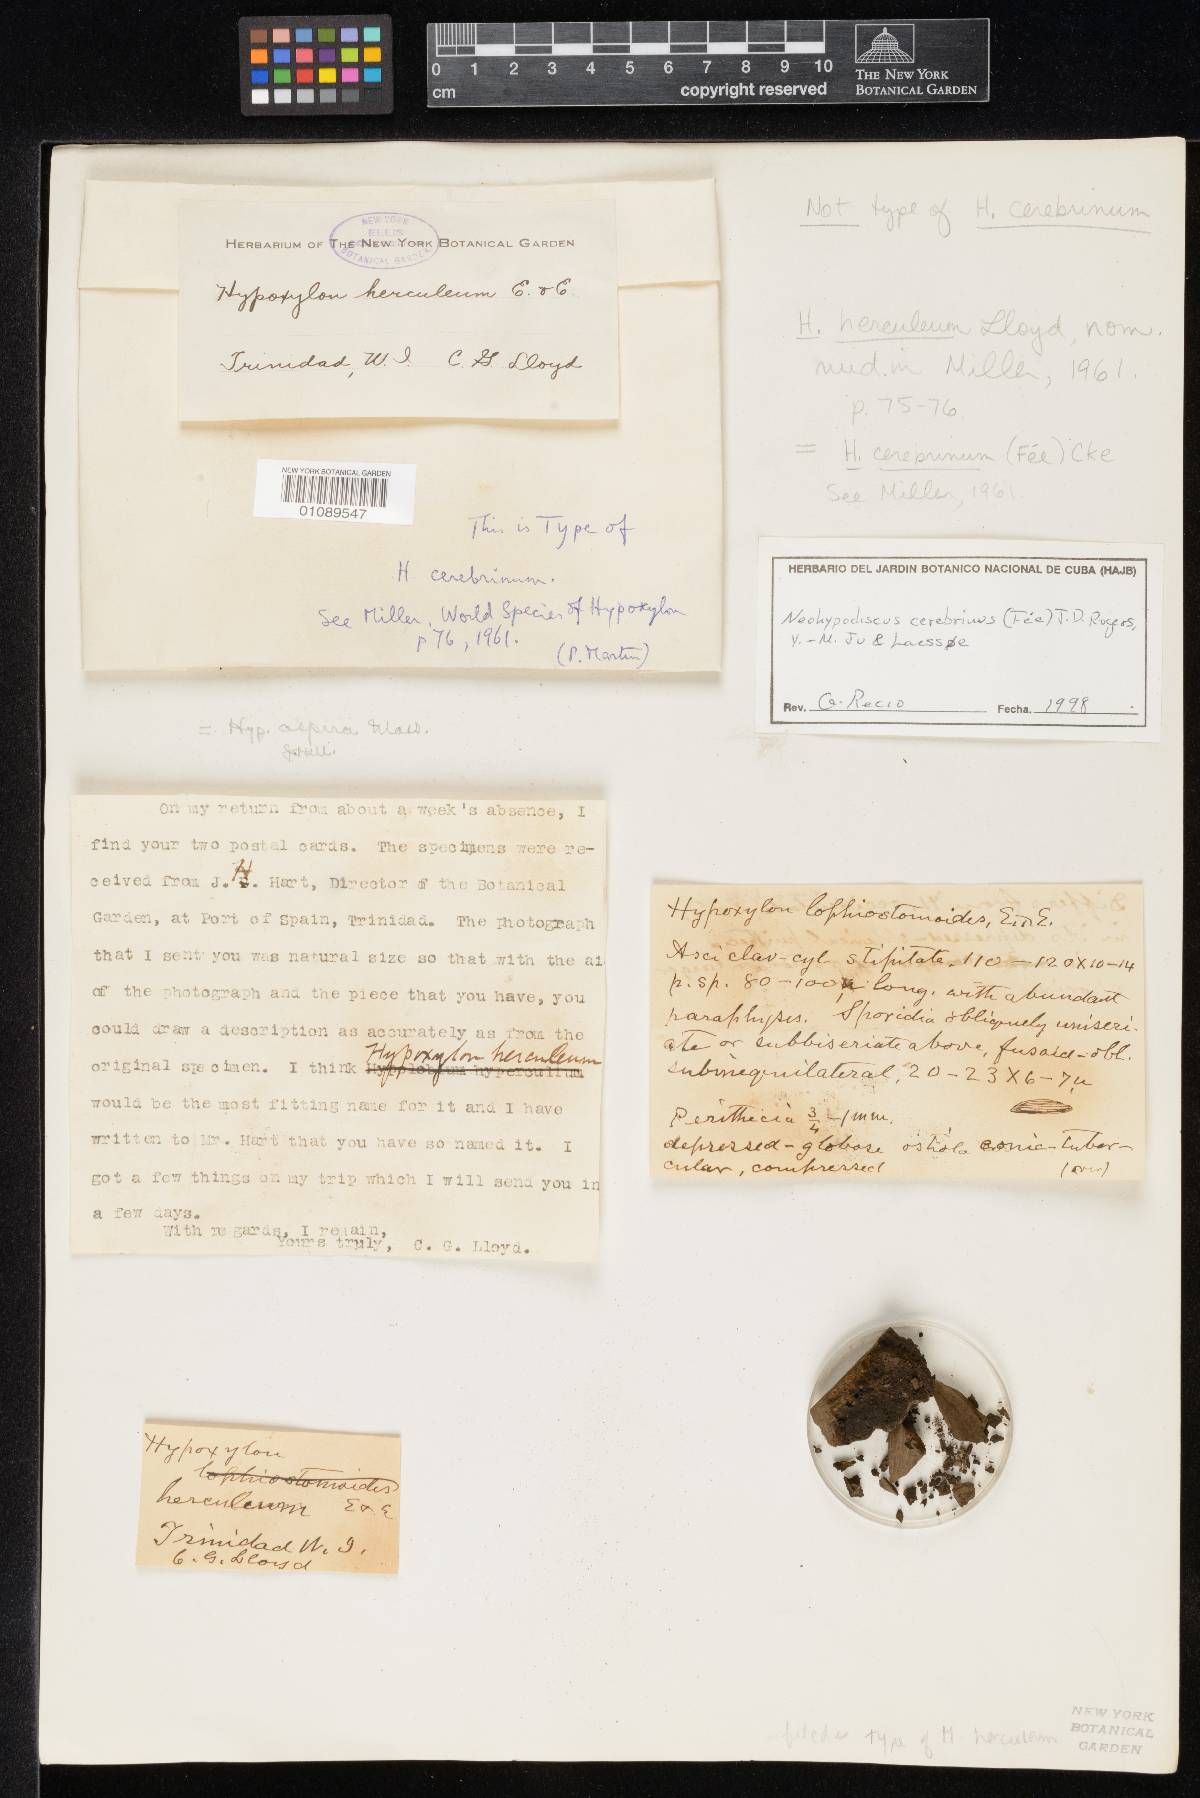 0 1 2 3 4 5 6 7 8 9 10
cm
copyright reserved
THE NEW YORK
BOTANICAL GARDEN
NEW YORK
ELLIS
BOTANICAL GARDEN
HERBARIUM OF THE NEW YORK BOTANICAL GARDEN
Hypoxylon herculeum E. & E.
Trinidad, W. I. C. G. Lloyd
NEW YORK BOTANICAL GARDEN
01089547
This is Type of
H cerebrinum.
See Miller, World Species of Hypoxylon
p 76, 1961.
(P. Martin)
Not type of H. cerebrinum
H. herculeum Lloyd, nom.
nud. in Miller, 1961.
p. 75-76.
= H. cerebrinum (Fée) Cke
See Miller, 1961.
HERBARIO DEL JARDIN BOTANICO NACIONAL DE CUBA (HAJB)
Neohypodiscus cerebrinus (Fée) J.D. Rogers,
Y.-M. Ju & Laessøe
Rev. G. Recio Fecha. 1998
= Hyp.
On my return from about a week's absence, I
find your two postal cards. The specimens were re-
ceived from J. H. Hart, Director of the Botanical
Garden, at Port of Spain, Trinidad. The photograph
that I sent you was natural size so that with the ai
of the photograph and the piece that you have, you
could draw a description as accurately as from the
Hypoxylon herculeum
original specimen. I think
would be the most fitting name for it and I have
written to Mr. Hart that you have so named it. I
got a few things on my trip which I will send you in
a few days.
With regards, I remain,
Yours truly, C. G. Lloyd.
Hypoxylon lophiostomoides, E. & E.
Asci clav-cyl. stipitate. 110-120 x 10-14
p. sp. 80-100µ long. with abundant
paraphyses. Sporidia obliquely uniseri-
ate or subbiseriate above, fusoid-obl.
subinequilateral, 20-23 X 6-7µ
Perithecia 3/4-1 mm.
depressed-globose ostiola conic-tuber-
cular, compressed (over)
Hypoxylon
lophiostomoides
herculeum E & E
Trinidad W. I.
C. G. Lloyd
filed as type of H. herculeum
NEW YORK
BOTANICAL
GARDEN